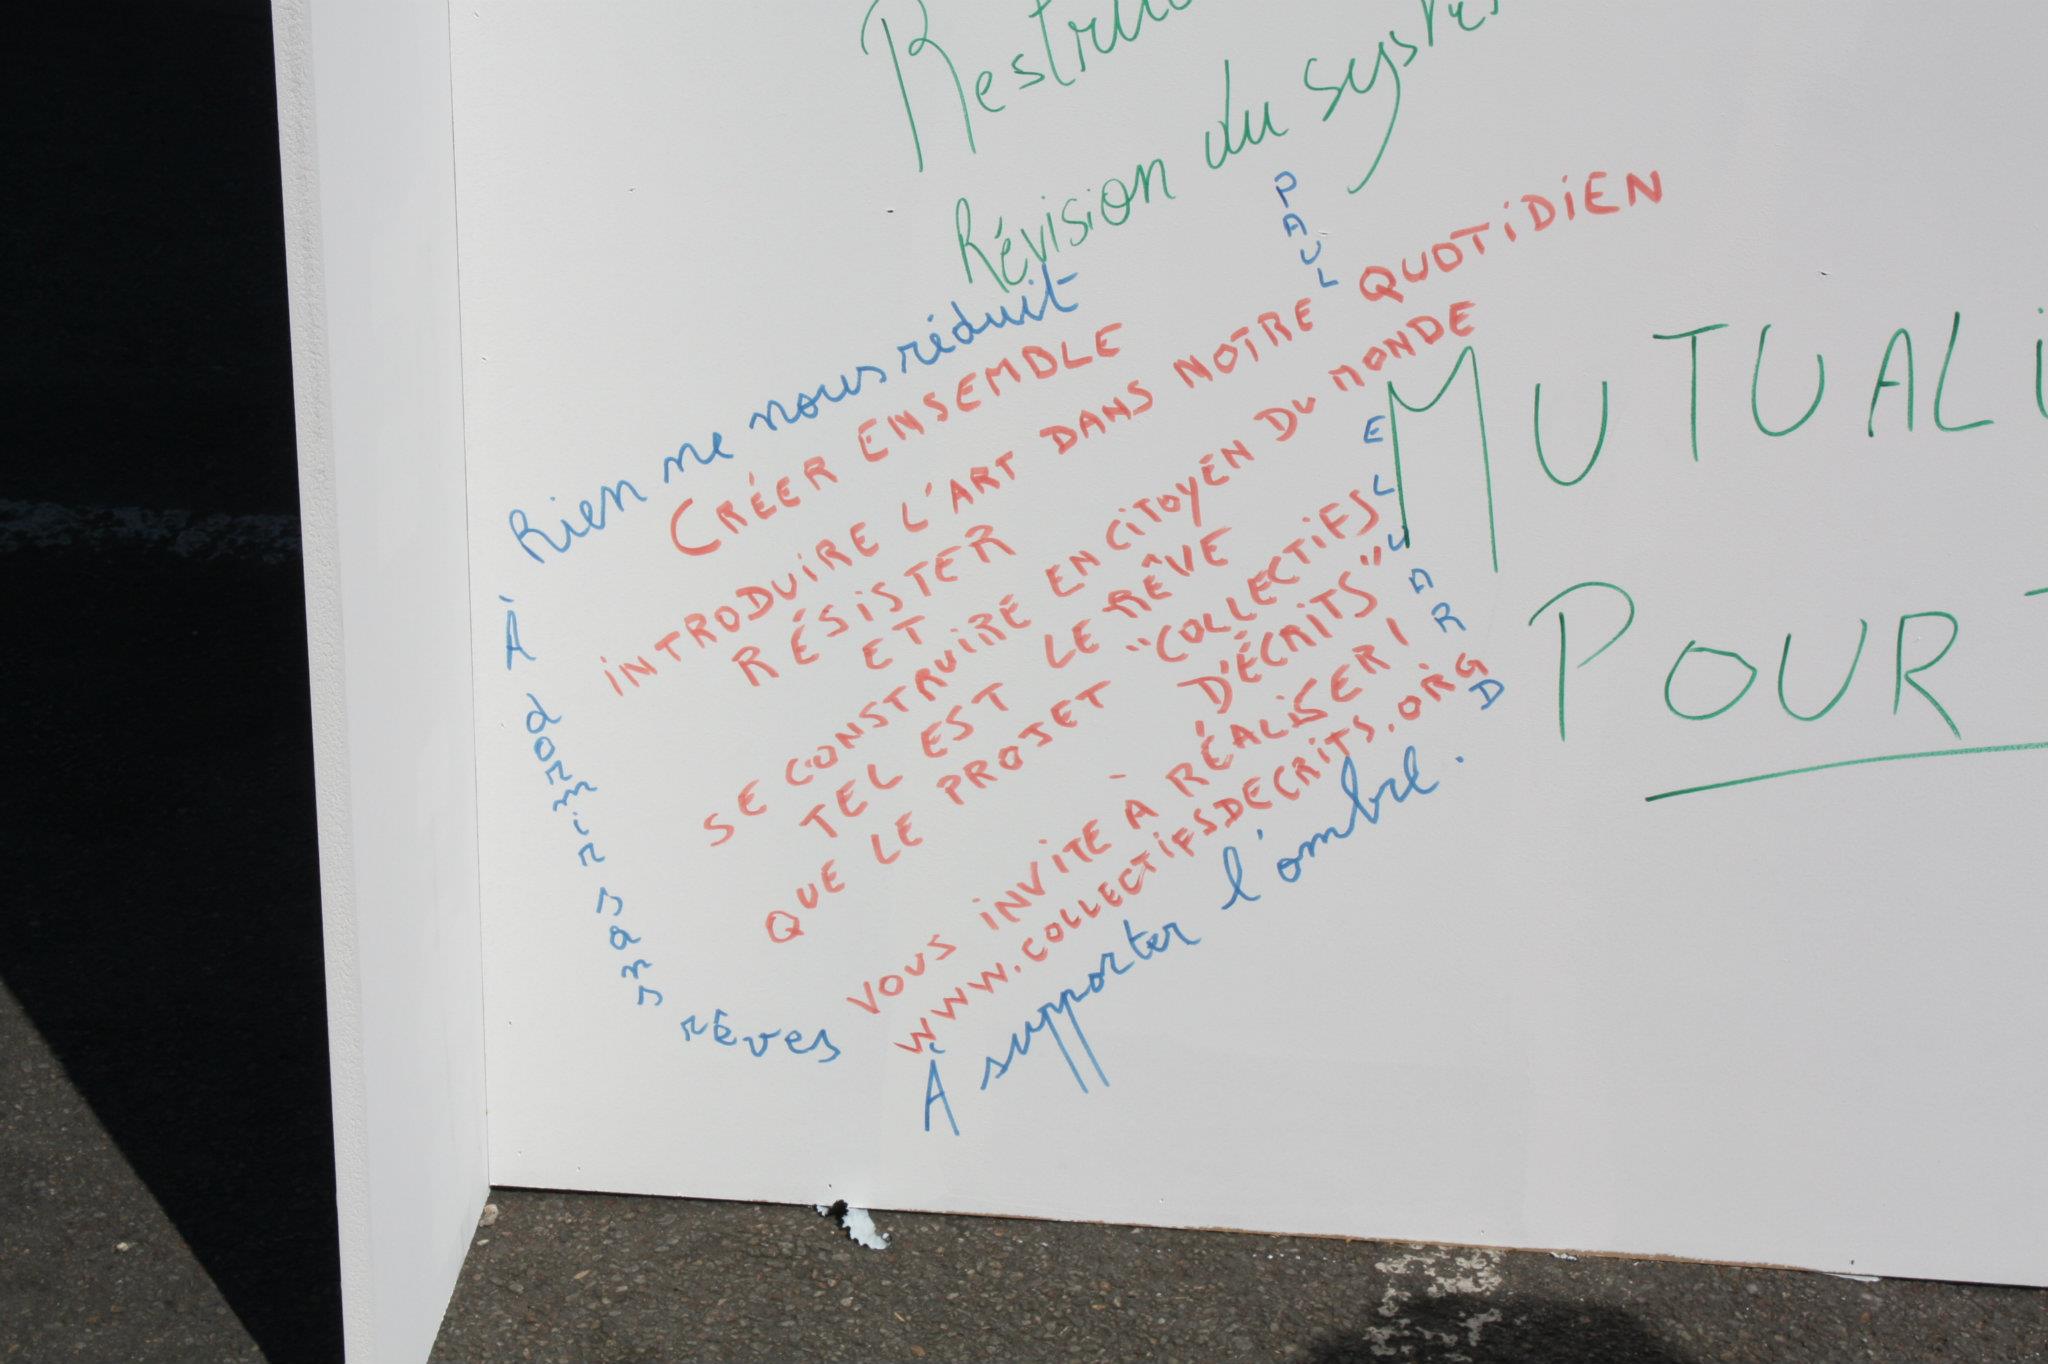 Révision du
Rien ne nous réduit
CRÉER ENSEMBLE
INTRODUIRE L'ART DANS NOTRE QUOTIDIEN
RÉSISTER
ET
SE CONSTRUIRE EN CITOYEN DU MONDE
TEL EST LE RÊVE
QUE LE PROJET "COLLECTIFS
D'ÉCRITS"
VOUS INVITE À RÉALISER !
WWW.COLLECTIFSDECRITS.ORG
À dormir sans rêves
À supporter l'ombre.
PAUL
ELUARD
MUTUALI
POUR